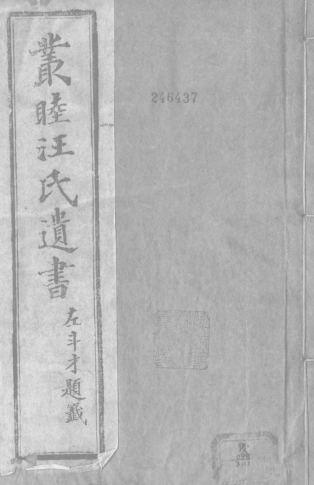 叢睦汪氏遺書
左斗才題籤
246437